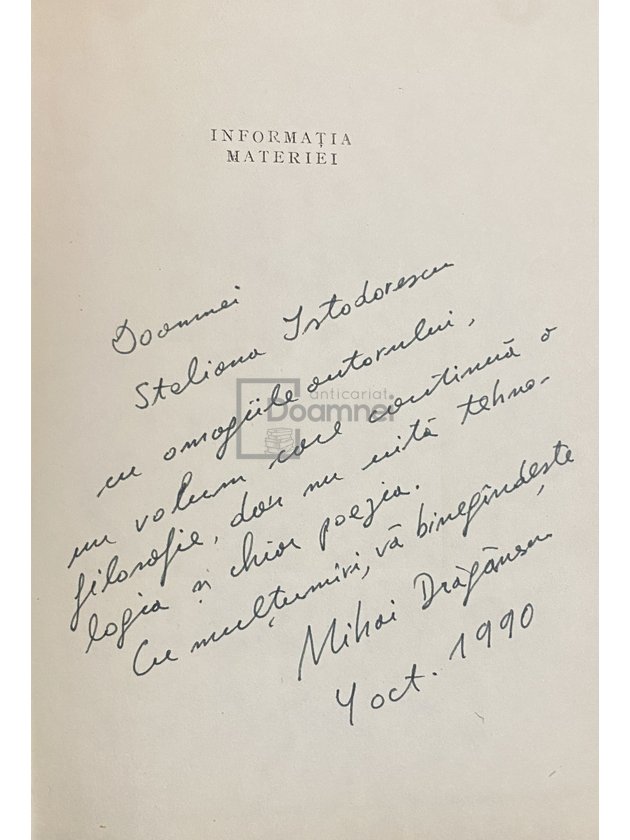 INFORMAȚIA
MATERIEI
Doamnei
Steliana Istodorescu
cu omagiile autorului,
un volum care continuă o
filosofie, dar nu uită tehno-
logia și chiar poezia.
Cu mulțumiri, vă binegîndește
Mihai Drăgănescu
4 oct. 1990
anticariat
Doamnei